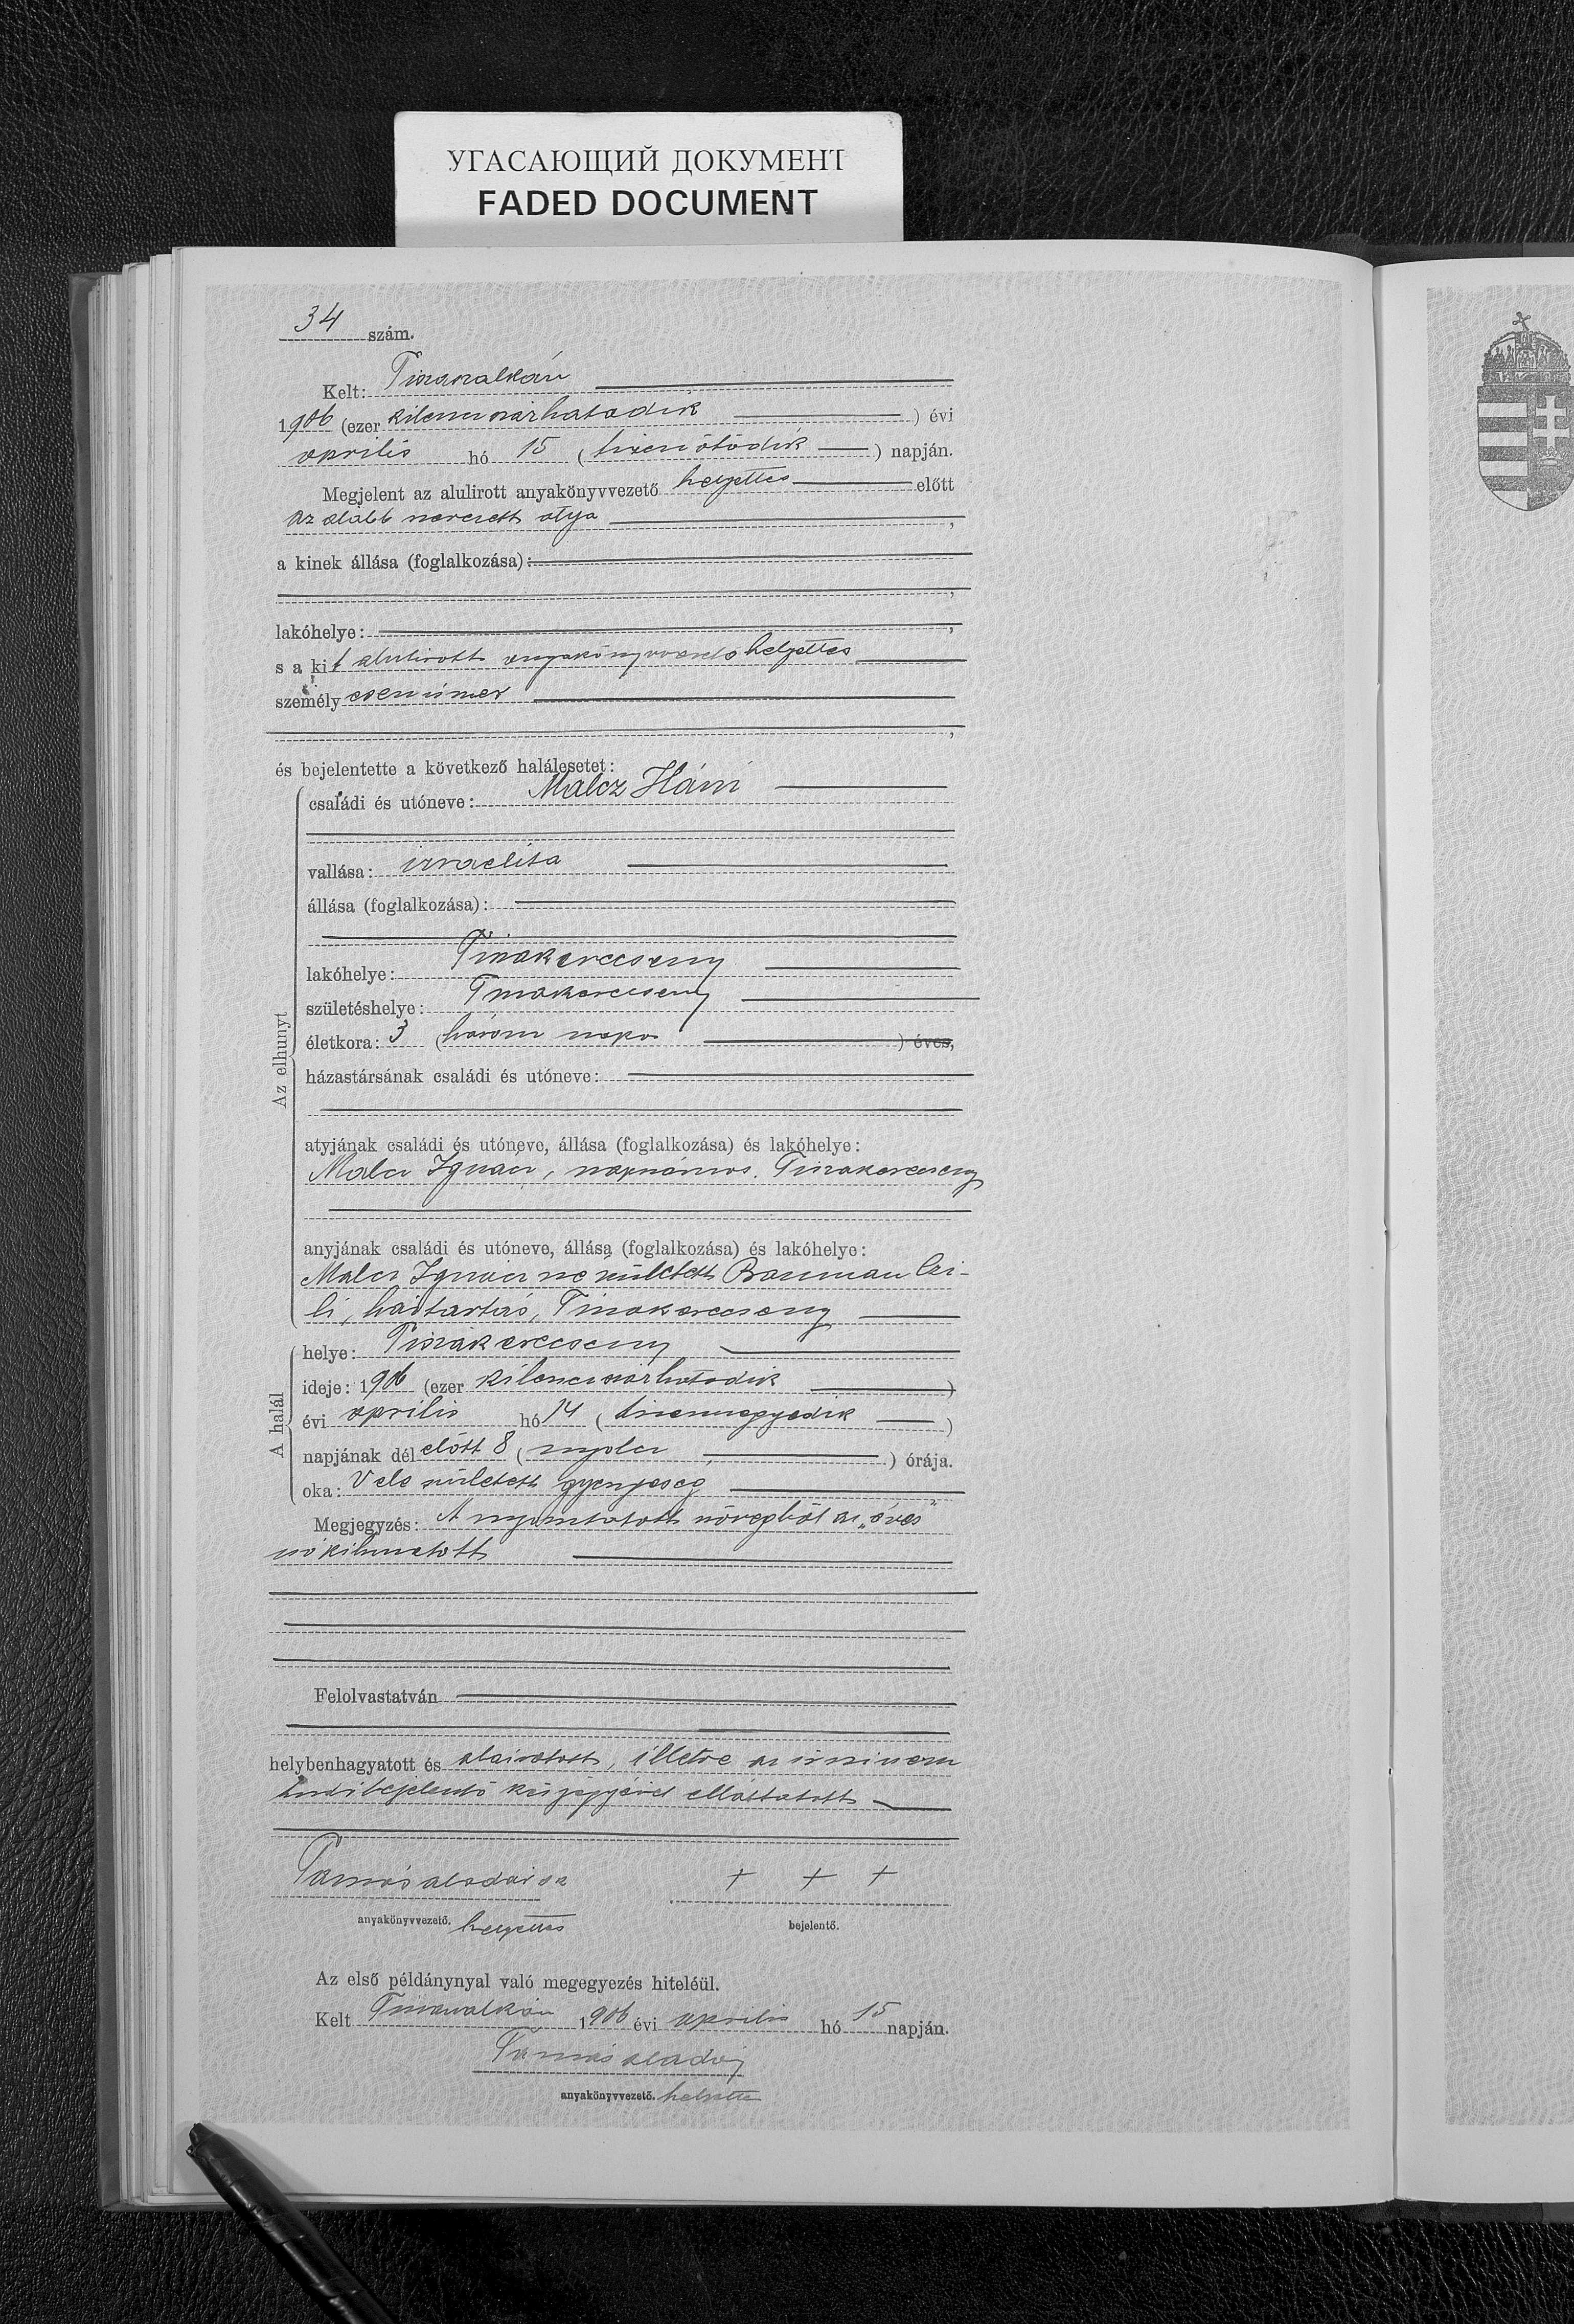 УГАСАЮЩИЙ ДОКУМЕНТ
FADED DOCUMENT
34 szám.
Kelt:
1906 (ezer kilenczszázhatodik ) évi
április hó 15 ( tizenötödik ) napján.
Megjelent az alulirott anyakönyvvezető helyettes előtt
az alább nevezett atya ,
a kinek állása (foglalkozása):
,
lakóhelye: ,
s a kit alulirott anyakönyvvezető helyettes
személyesen ismer
,
és bejelentette a következő halálesetet:
Az elhunyt
családi és utóneve: Malcz Háni
vallása: izraelita
állása (foglalkozása):
lakóhelye: Tiszakerecseny
születéshelye: Tiszakerecseny
életkora: 3 (három napos ) éves,
házastársának családi és utóneve:
atyjának családi és utóneve, állása (foglalkozása) és lakóhelye:
Malcz Ignácz, napszámos. Tiszakerecseny
anyjának családi és utóneve, állása (foglalkozása) és lakóhelye:
Malcz Ignácz né született Bauman Czi-
li, háztartás, Tiszakerecseny
A halál
helye: Tiszakerecseny
ideje: 1906 (ezer kilenczszázhatodik )
évi április hó 14 ( tizennegyedik )
napjának dél előtt 8 ( nyolcz ) órája.
oka: Vele született gyengeség
Megjegyzés: A nyomtatott szövegből az „éves”
szó kihuzatott
Felolvastatván
helybenhagyatott és aláiratott, illetve az irni nem
tudó bejelentő kézjegyével elláttatott
Tamás Aladár sk + + +
anyakönyvvezető. helyettes bejelentő.
Az első példánynyal való megegyezés hiteléül.
Kelt 1906 évi április hó 15 napján.
Tamás Aladár
anyakönyvvezető. helyettes